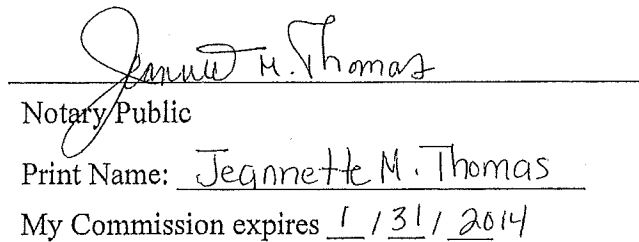 Jeannette M. Thomas
Notary Public
Print Name: Jeannette M. Thomas
My Commission expires 1 / 31 / 2014